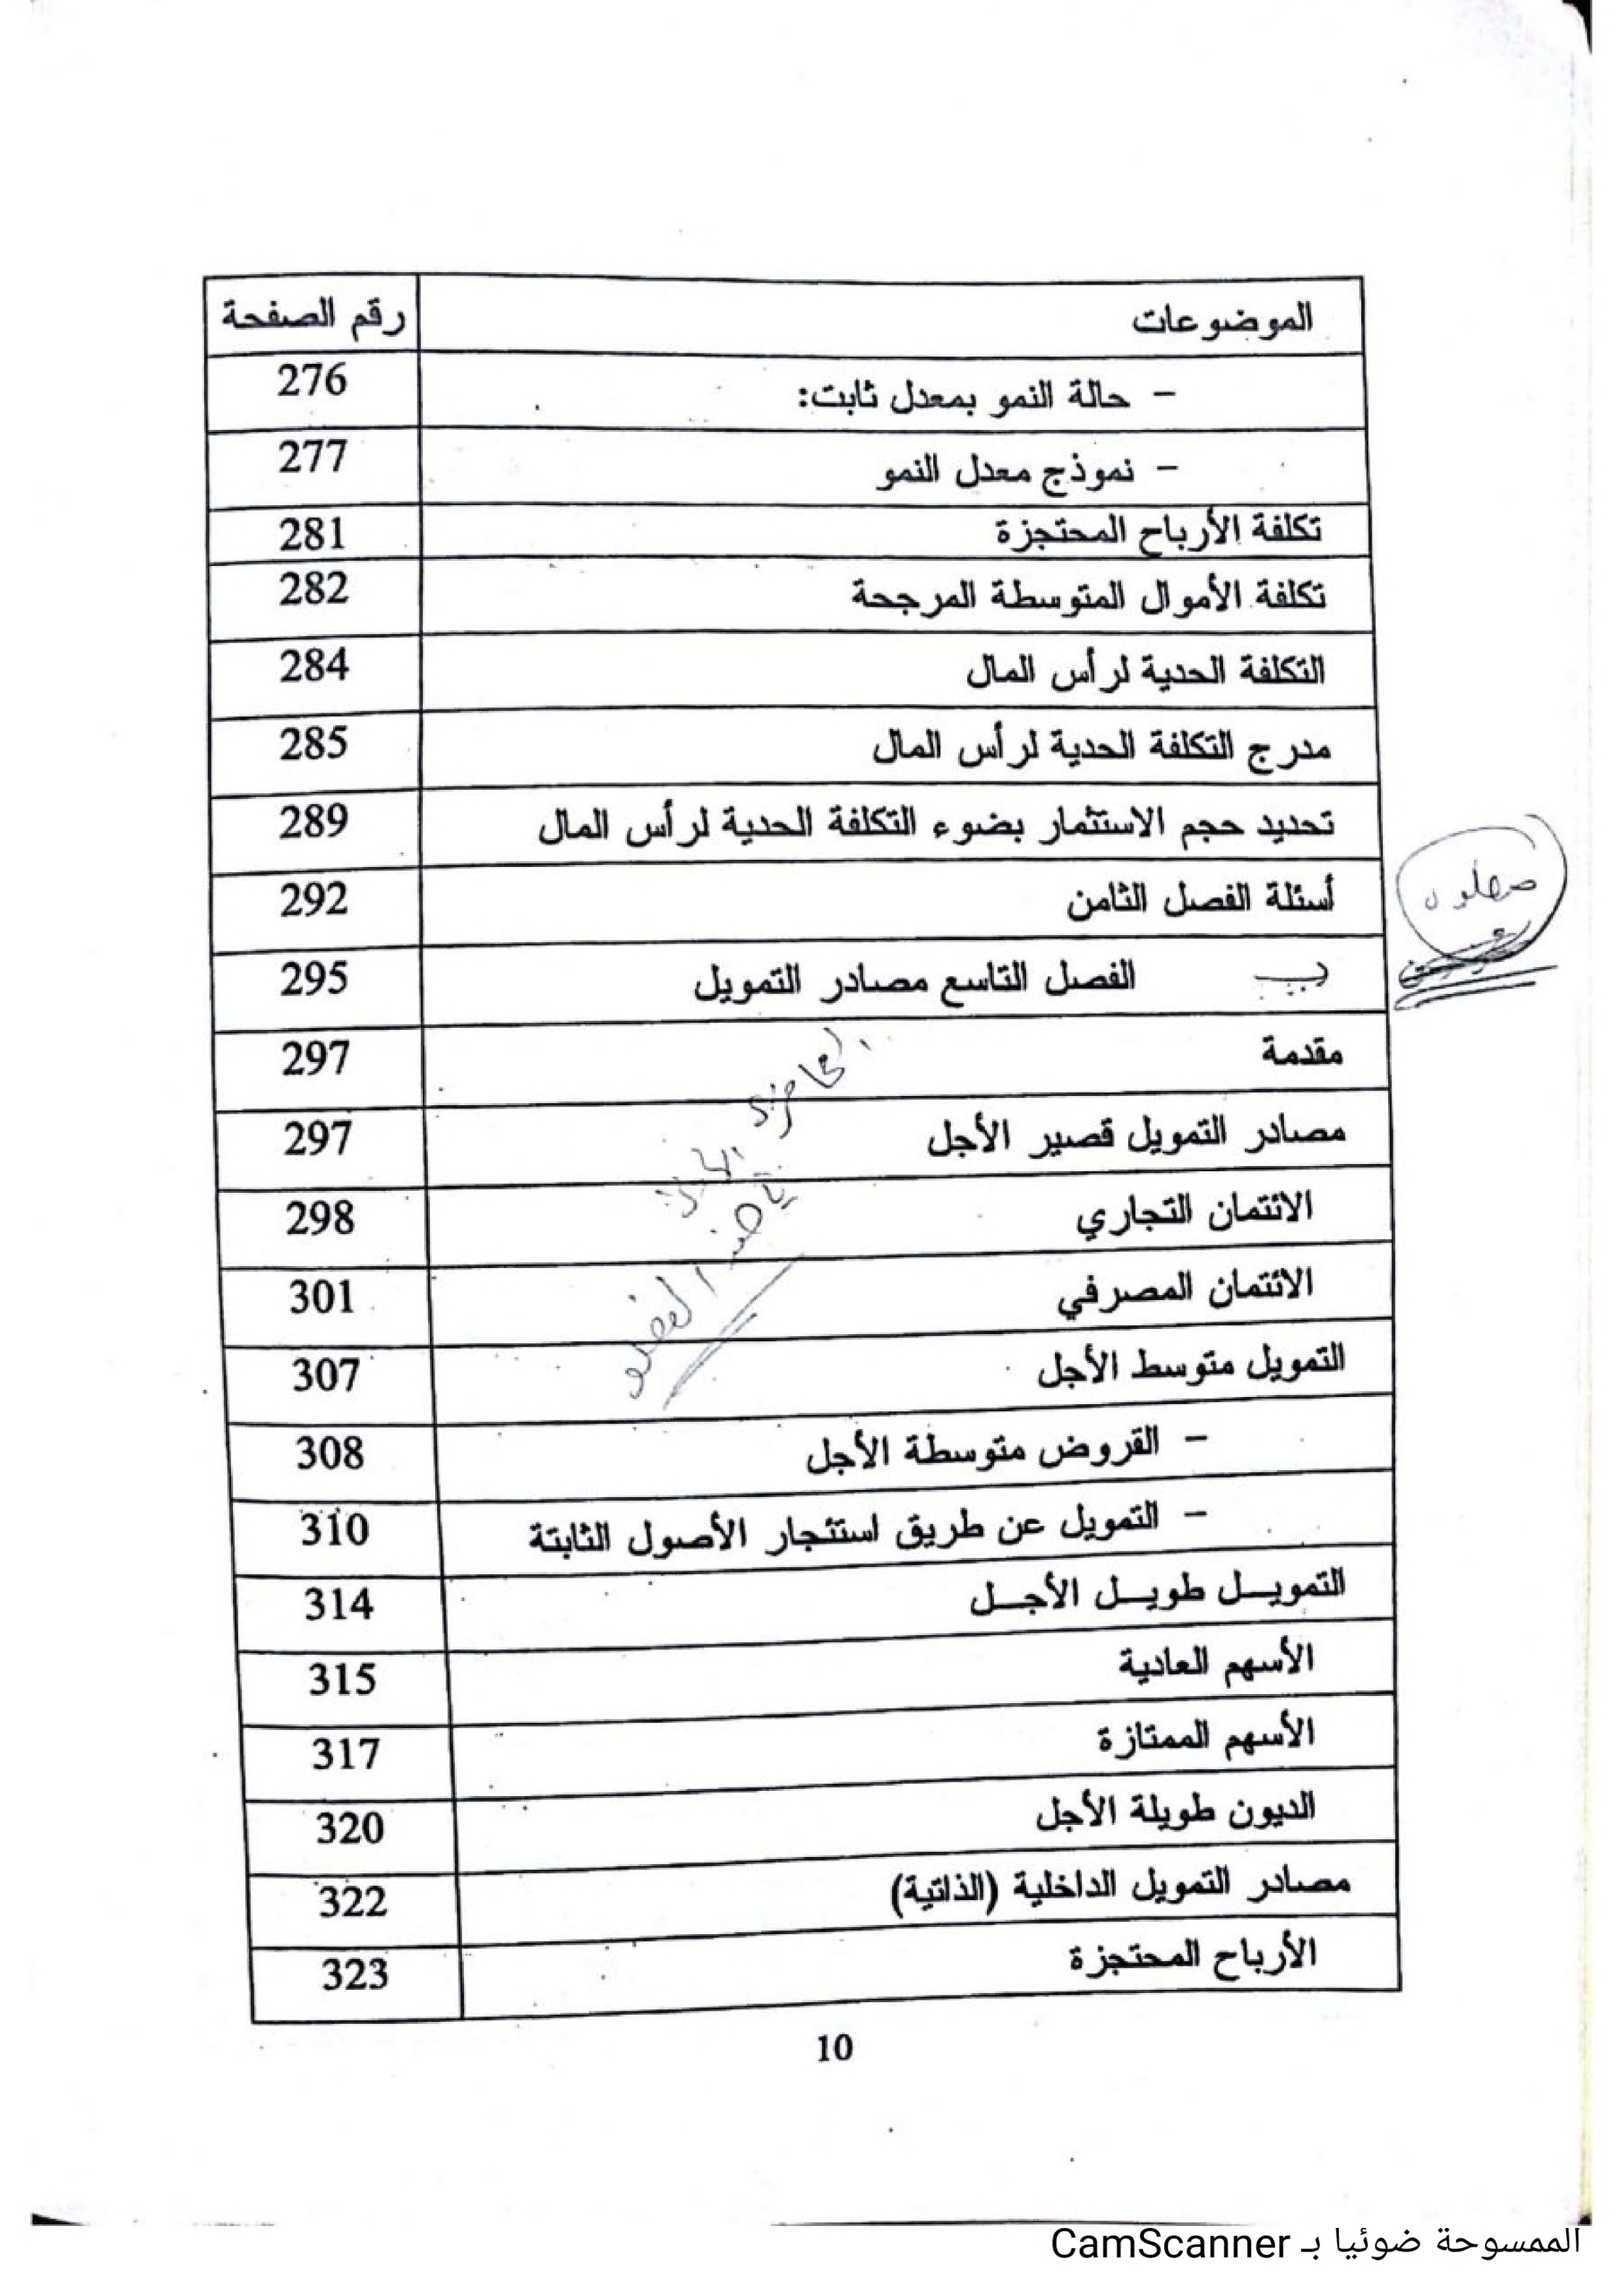 الموضوعات رقم الصفحة
- حالة النمو بمعدل ثابت: 276
- نموذج معدل النمو 277
تكلفة الأرباح المحتجزة 281
تكلفة الأموال المتوسطة المرجحة 282
التكلفة الحدية لرأس المال 284
مدرج التكلفة الحدية لرأس المال 285
تحديد حجم الاستثمار بضوء التكلفة الحدية لرأس المال 289
أسئلة الفصل الثامن 292
الفصل التاسع مصادر التمويل 295
مقدمة 297
مصادر التمويل قصير الأجل 297
الائتمان التجاري 298
الائتمان المصرفي 301
التمويل متوسط الأجل 307
- القروض متوسطة الأجل 308
- التمويل عن طريق استئجار الأصول الثابتة 310
التمويــل طويــل الأجــل 314
الأسهم العادية 315
الأسهم الممتازة 317
الديون طويلة الأجل 320
مصادر التمويل الداخلية (الذاتية) 322
الأرباح المحتجزة 323
10
الممسوحة ضوئيا بـ CamScanner